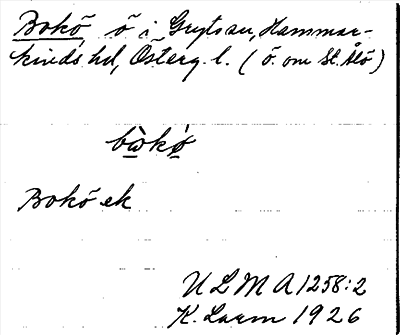 Bokö, ö i Gryts sn, Hammar-
kinds hd, Österg. l. (ö. om St. Ålö)
bὼkø̀
Bokö ek
ULMA 1258:2
K. Larm 1926